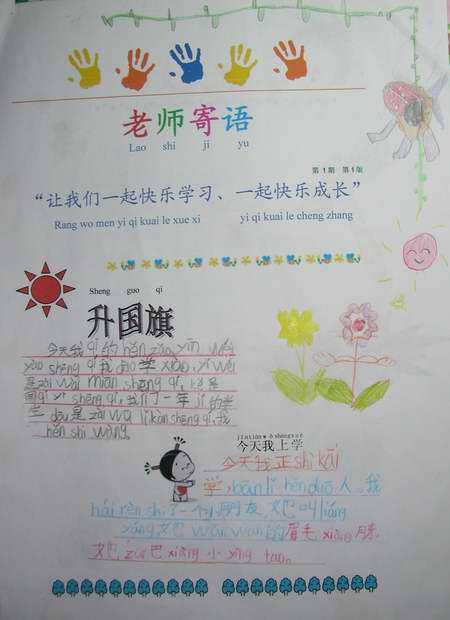 老师寄语
Lao shi ji yu
第1期 第1版
“让我们一起快乐学习、一起快乐成长”
Rang wo men yi qi kuai le xue xi yi qi kuai le cheng zhang
Sheng guo qi
升国旗
今天我 qi 的 hěn zǎo yīn wéi
yào shēng qí 我 dào 学 xiào, yī wèi
是 zài wài miàn shēng qí,
qí yì shēng qí, 我们了一年 jí 的学
生 dōu 是 zài wū lǐ kàn shēng qí, 我
hěn shī wàng。
jīn tiān wǒ shàng xué
今天我上学
今天我正 shì kāi
学, bān lǐ hěn duō 人。我
hái rèn shi 了一个小朋友, 她叫 liáng
yáng, 她 wān wān 的眉毛 xiàng 月牙,
她 zuǐ 巴 xiàng 小 yīng táo。